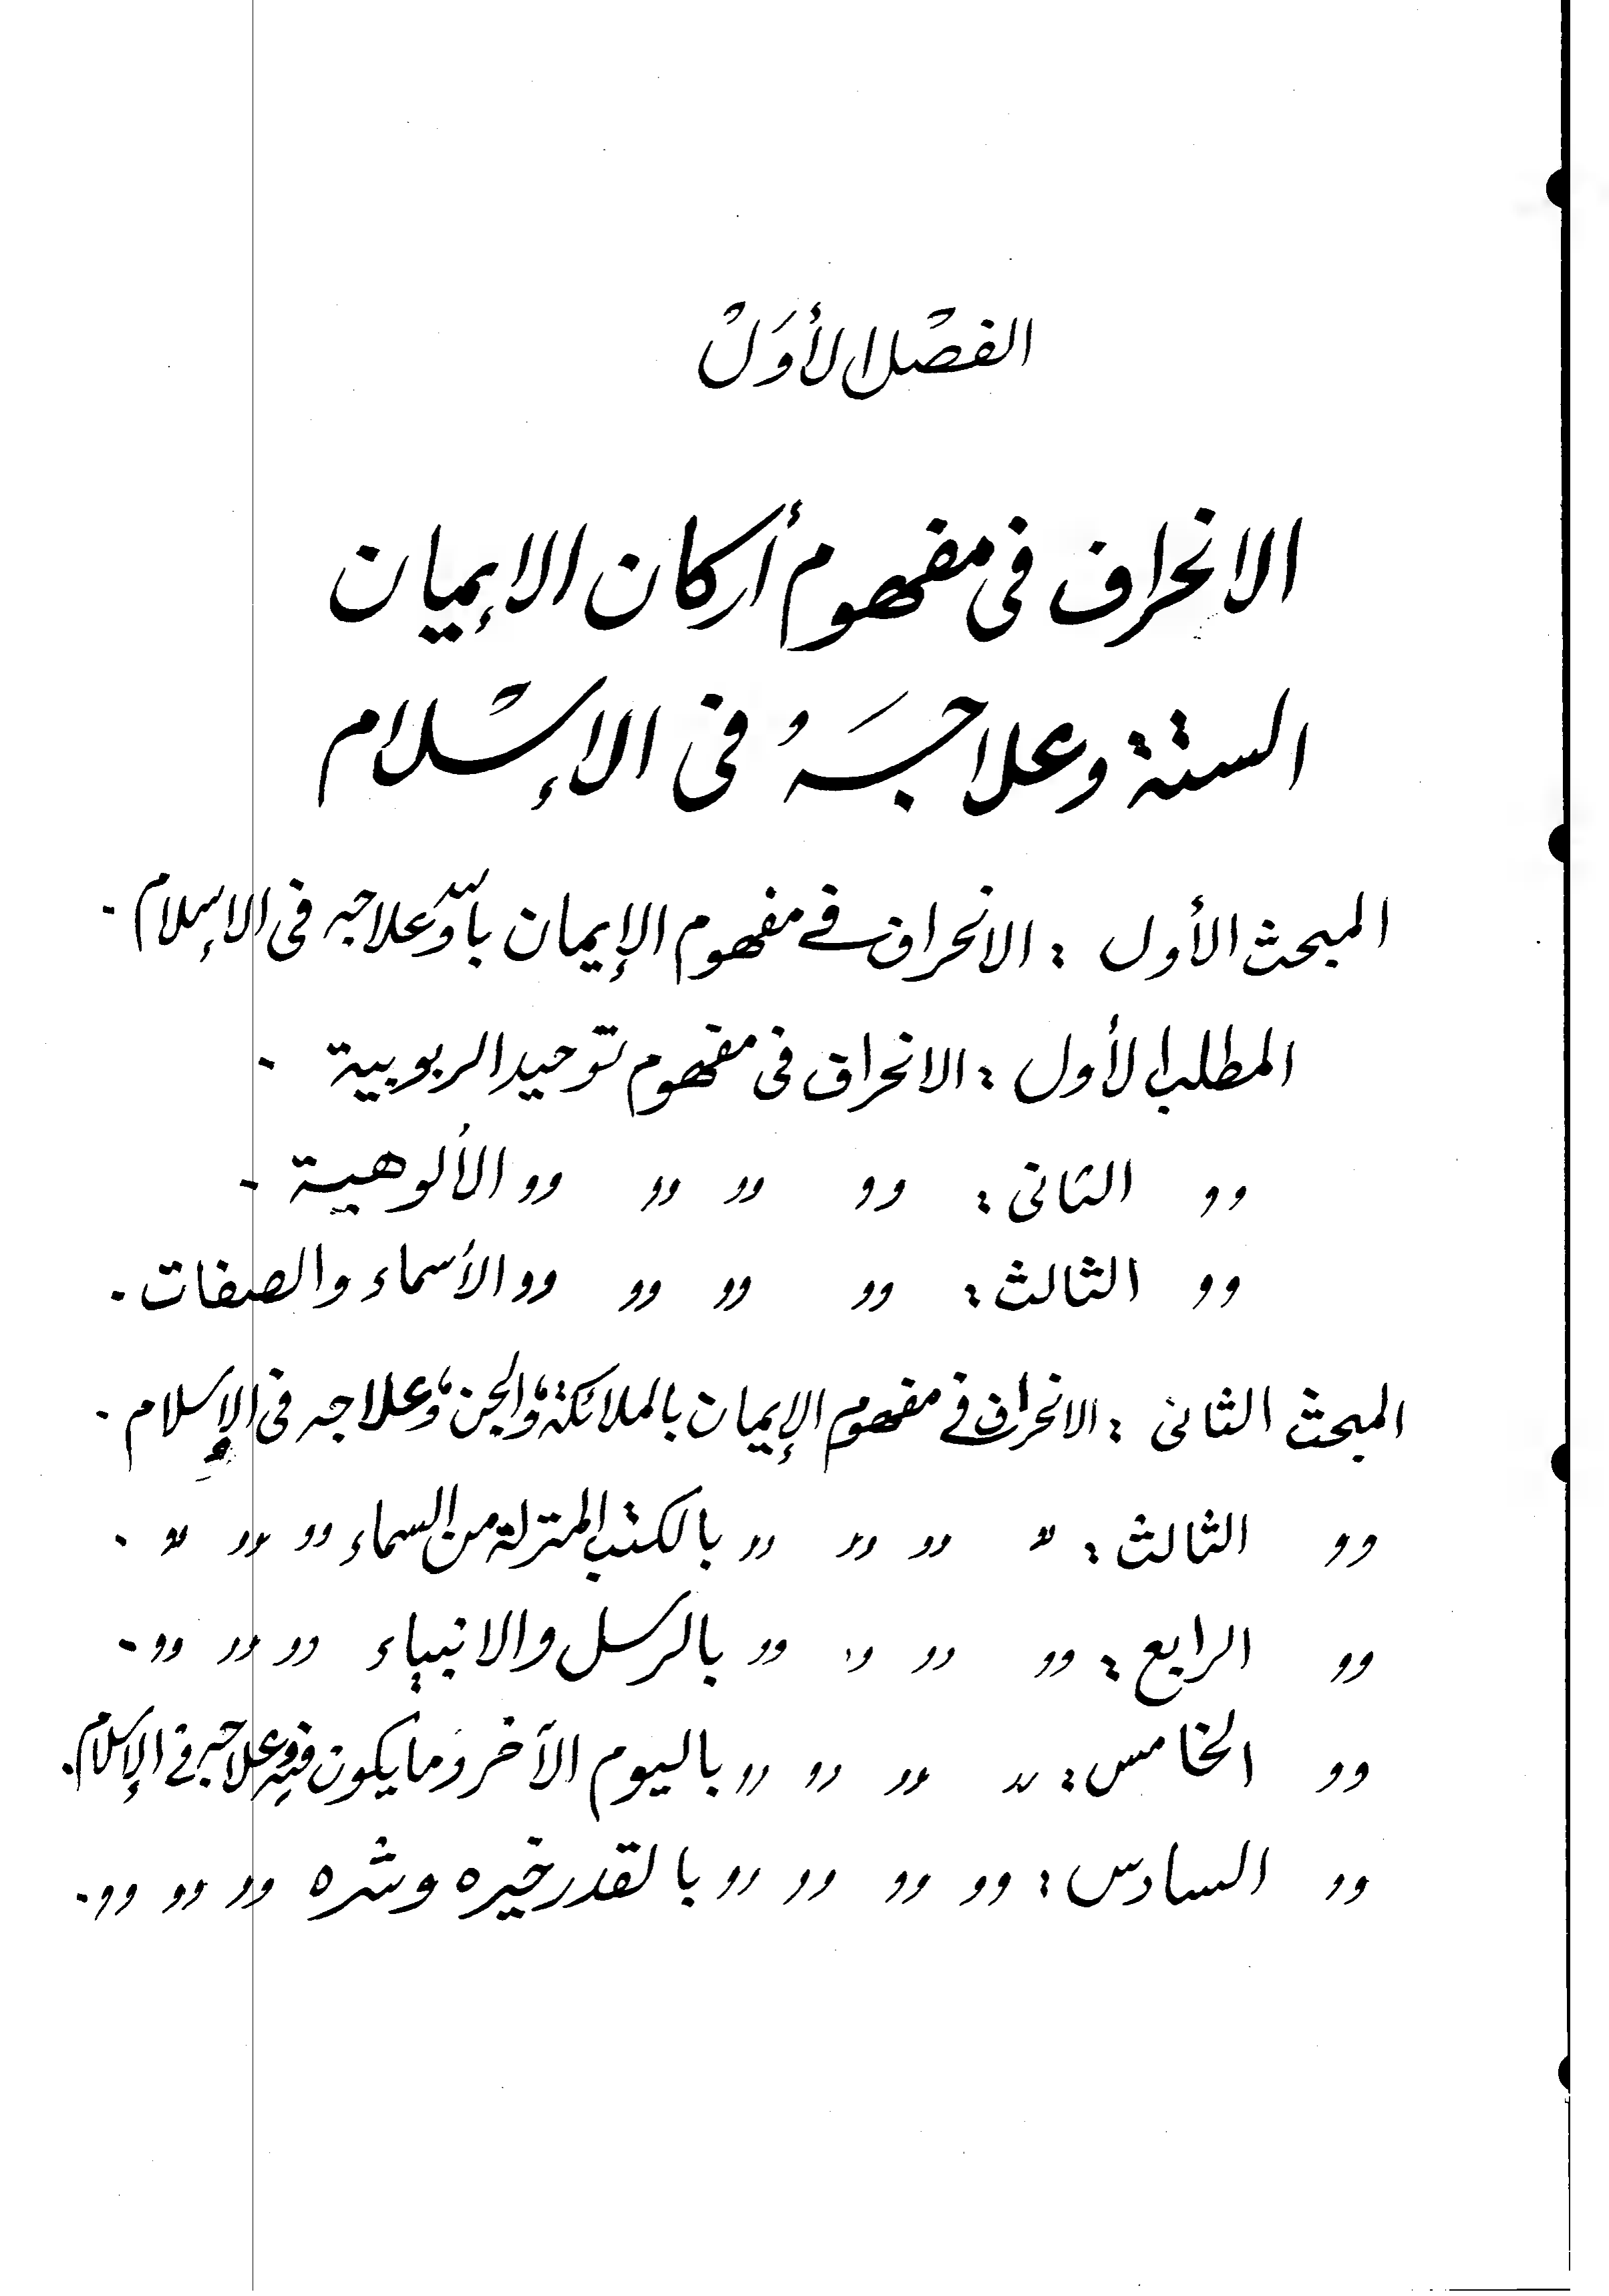 الفصل الأول
الانحراف فى مفهوم أركان الإيمان
الستة وعلاجه فى الإسلام
المبحث الأول : الانحراف في مفهوم الإيمان بالله وعلاجه فى الإسلام .
المطلب الأول : الانحراف فى مفهوم توحيد الربوبية .
,, الثانى : ,, ,, ,, ,, الألوهية .
,, الثالث : ,, ,, ,, ,, الأسماء والصفات .
المبحث الثانى : الانحراف في مفهوم الإيمان بالملائكة، والجن، وعلاجه فى الإسلام .
,, الثالث : ,, ,, ,, ,, بالكتب المنزلة من السماء ,, ,, ,, .
,, الرابع : ,, ,, ,, ,, بالرسل والانبياء ,, ,, ,, .
,, الخامس : ,, ,, ,, ,, باليوم الآخر وما يكون فيه وعلاجه في الإسلام .
,, السادس : ,, ,, ,, ,, بالقدر خيره وشره ,, ,, ,, .